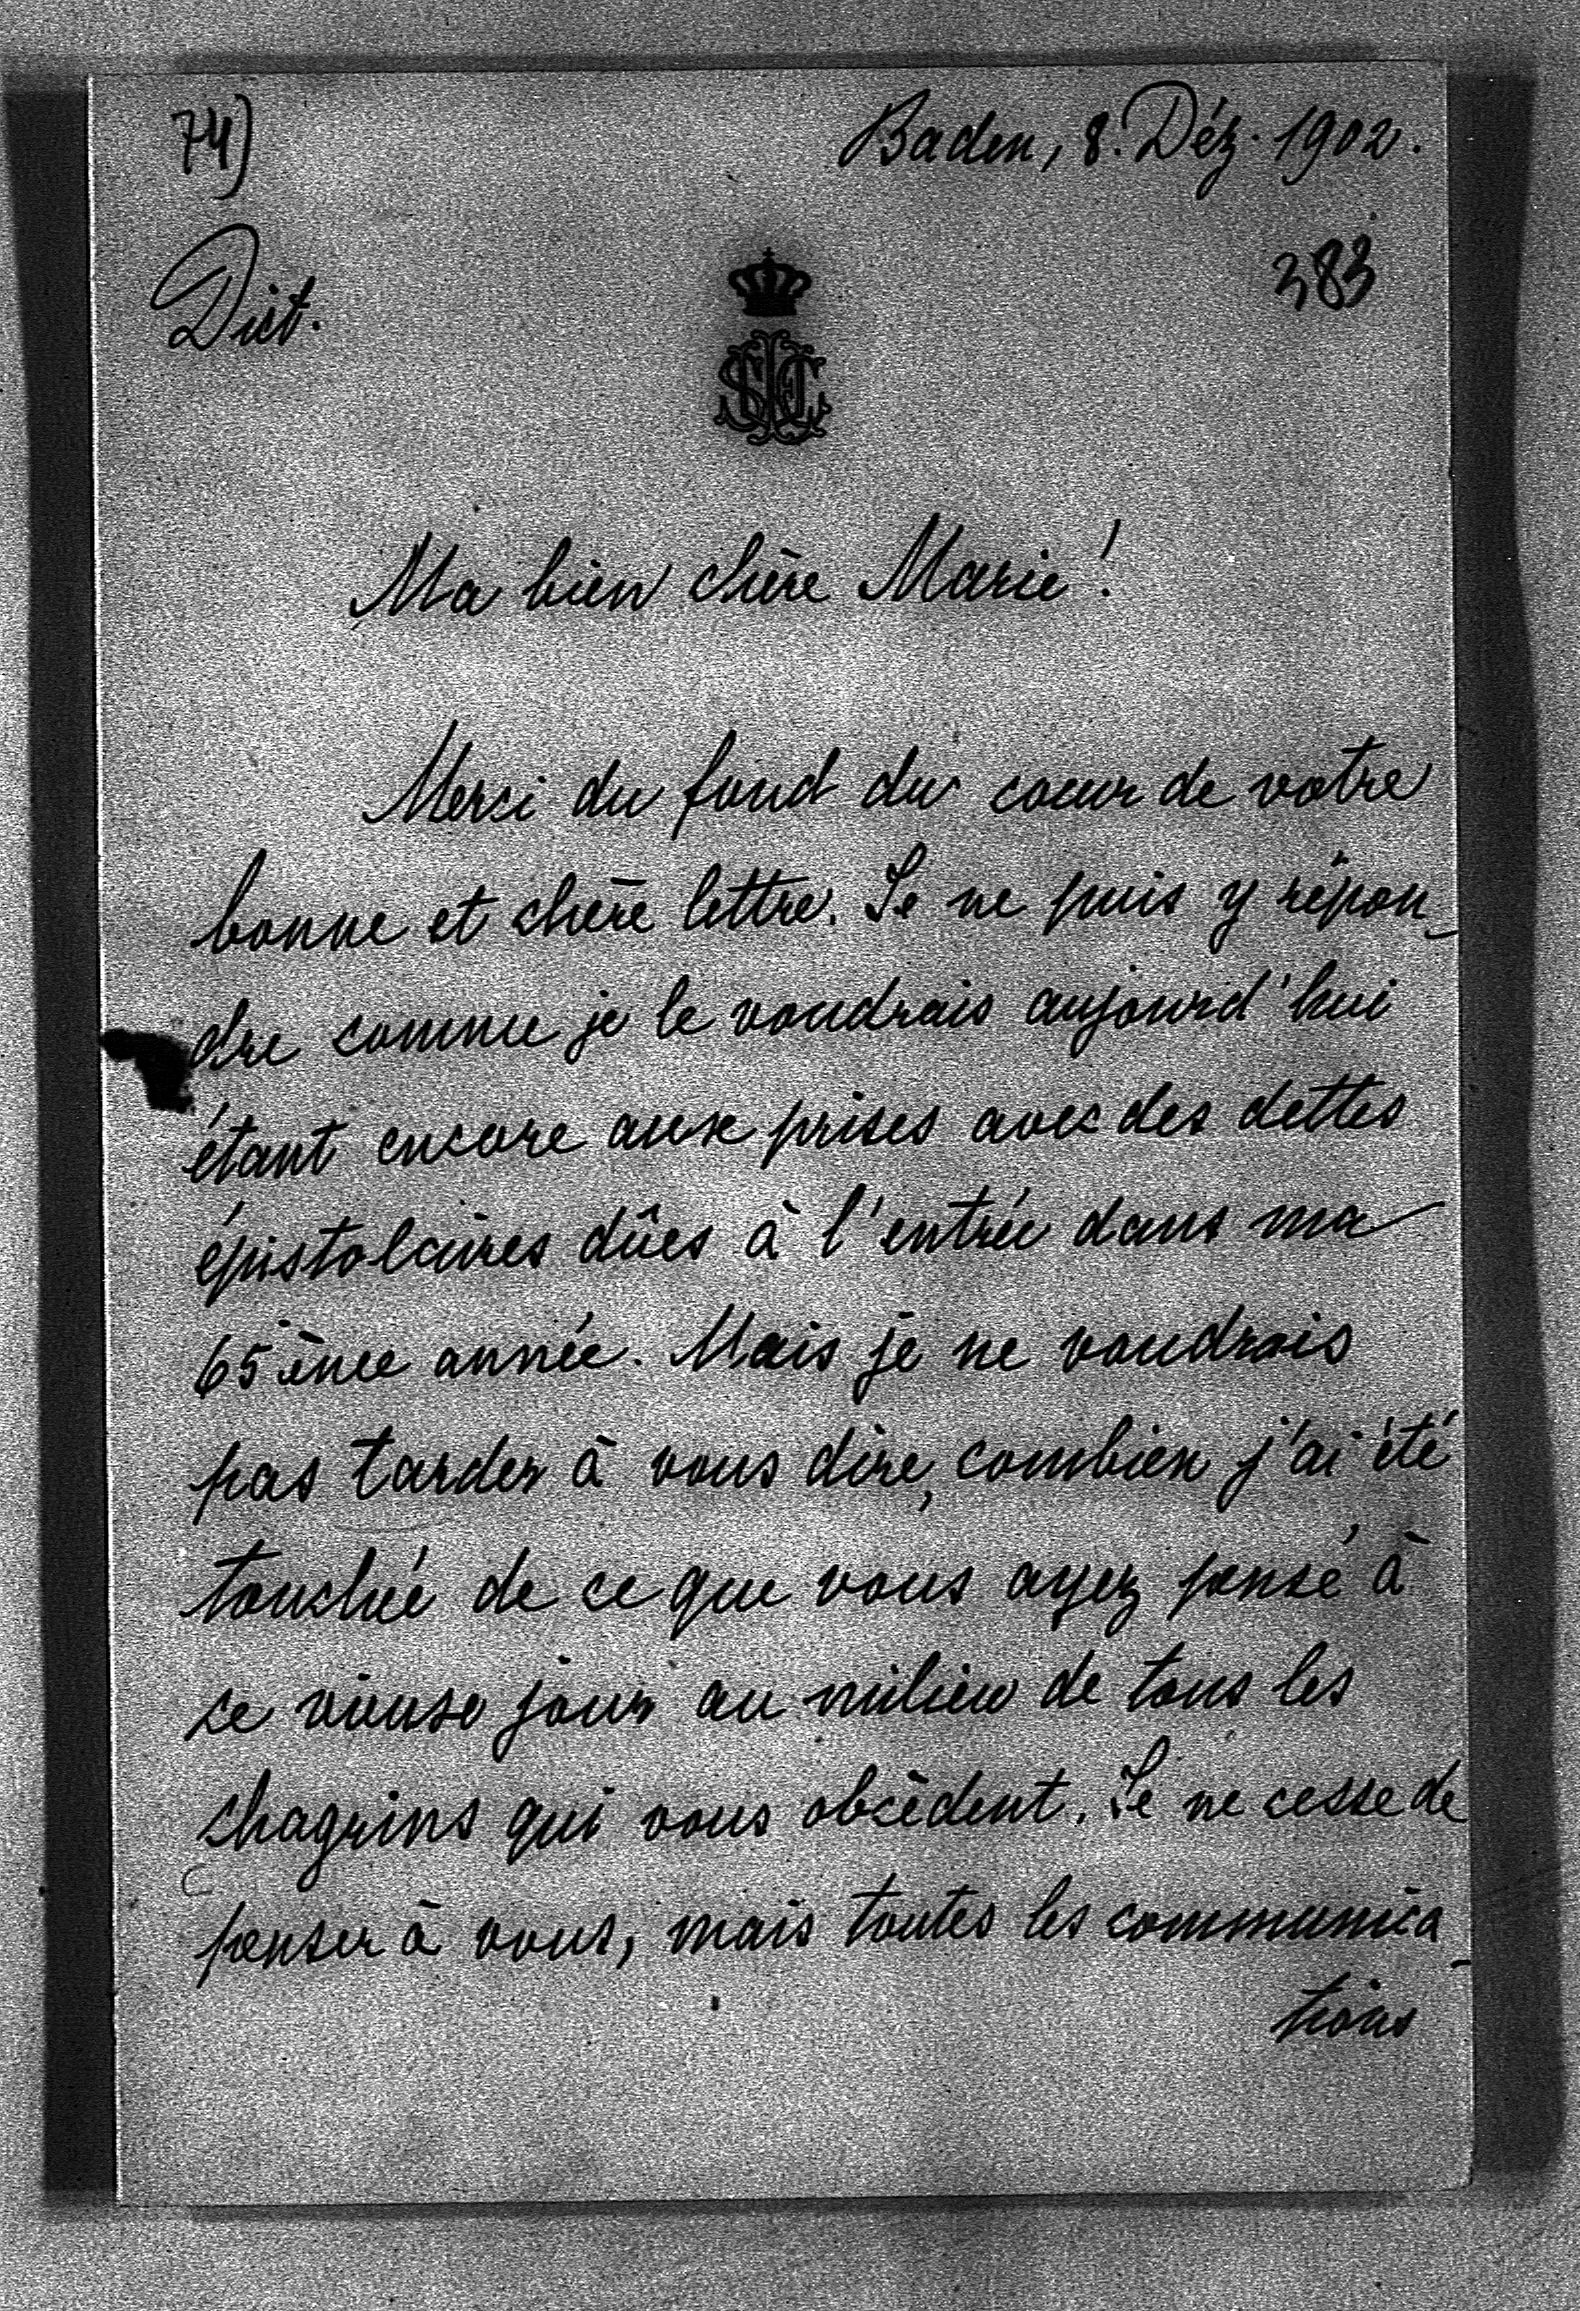 74)
Baden, 8. Déz. 1902.
383
Dict.
Ma bien chère Marie!
Merci du fond du coeur de votre
bonne et chère lettre. Je ne puis y répon-
dre comme je le voudrais aujourd'hui
étant encore aux prises avec des dettes
épistolaires dûes à l'entrée dans ma
65ième année. Mais je ne voudrais
pas tarder à vous dire, combien j'ai été
touchée de ce que vous ayez pensé à
ce vieux jour au milieu de tous les
chagrins qui vous obcèdent. Je ne cesse de
penser à vous, mais toutes les communica-
tions